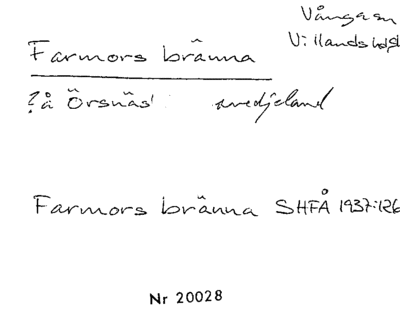 Vånga sn
V:
Farmors bränna
?å Örsnäs svedjeland
Farmors bränna SHFÅ 1937:126
Nr 20028